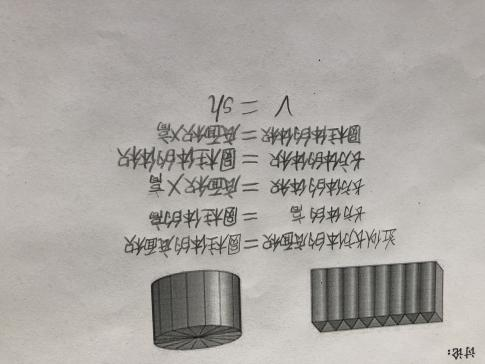 讨论:
近似长方体的底面积=圆柱体的底面积
长方体的高 =圆柱体的高
长方体的体积=底面积×高
长方体的体积=圆柱体的体积
圆柱体的体积=底面积×高
V = sh